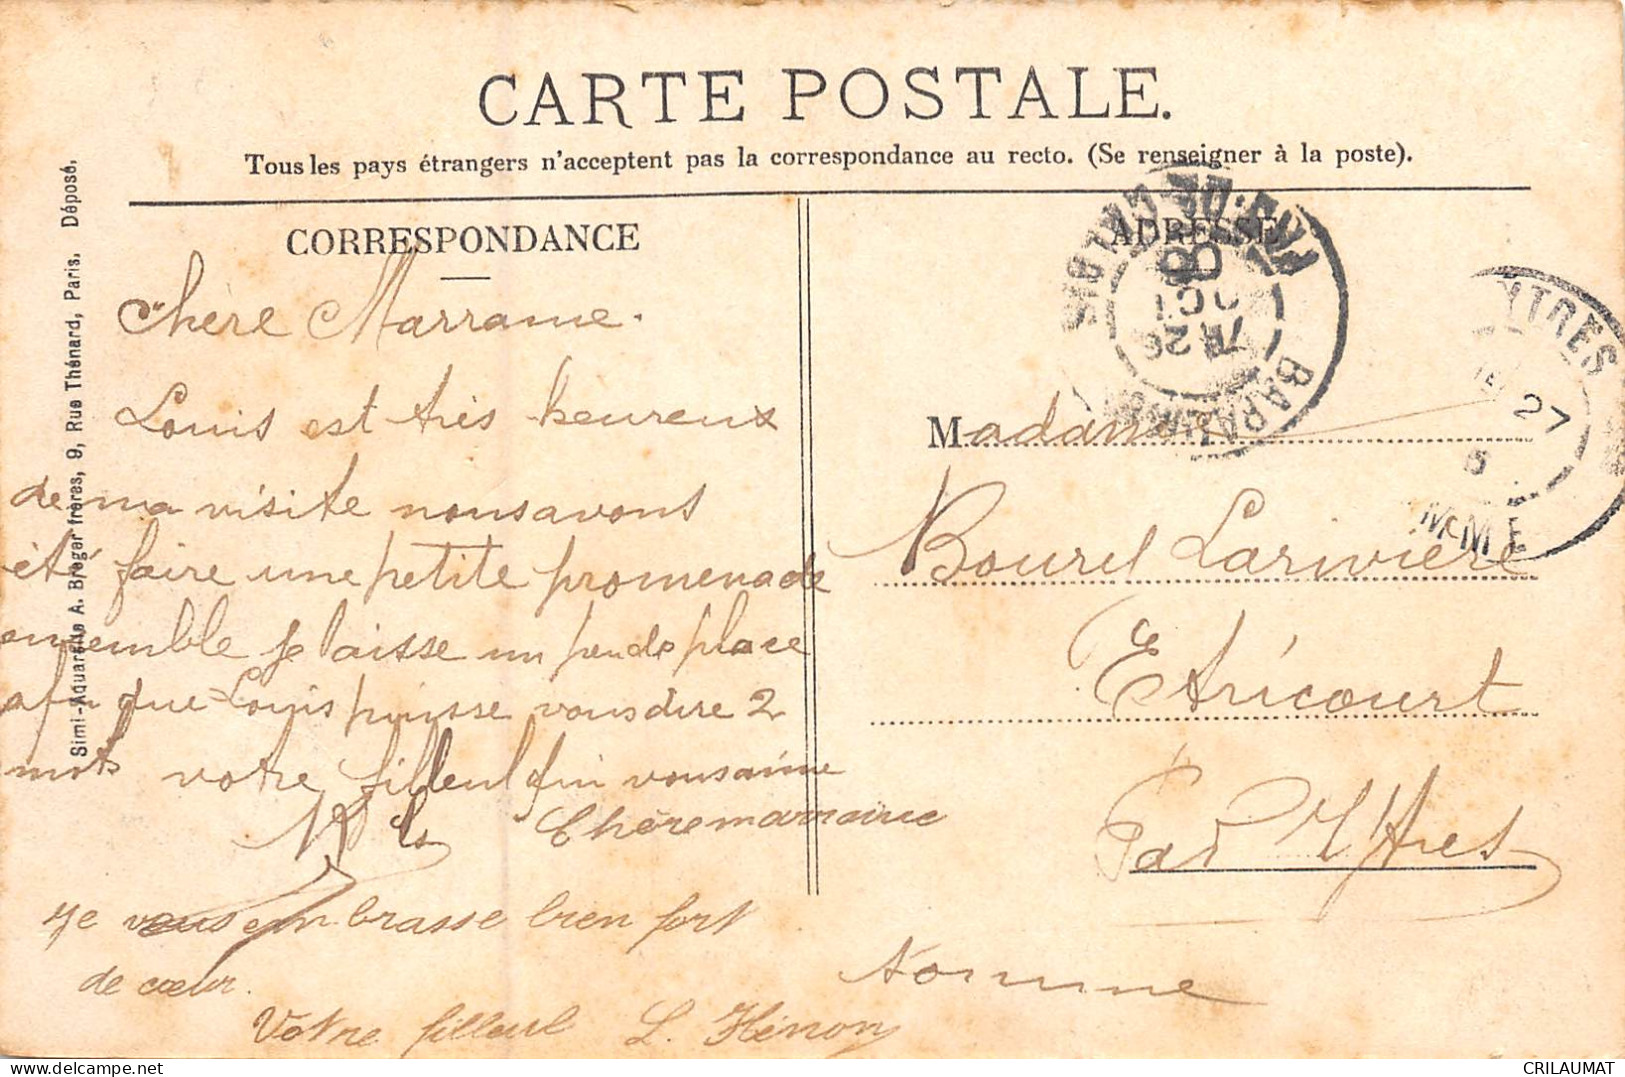 CARTE POSTALE.
Tous les pays étrangers n'acceptent pas la correspondance au recto. (Se renseigner à la poste).
Simi-Aquarelle A. Breger frères, 9, Rue Thénard, Paris. Déposé.
CORRESPONDANCE
Chère Marraine.
Louis est très heureux
de ma visite nous avons
été faire une petite promenade
ensemble je laisse un peu de place
afin que Louis puisse vous dire 2
mots votre filleul qui vous aime
Chère marraine
Je vous embrasse bien fort
de cœur.
Votre filleul L. Hénon
ADRESSE
Madame
Bourel Larivière
Etricourt
Par Ytres
Somme
7E 26
OCT
08
BAPAUME
YTRES
27
MME
CRILAUMAT